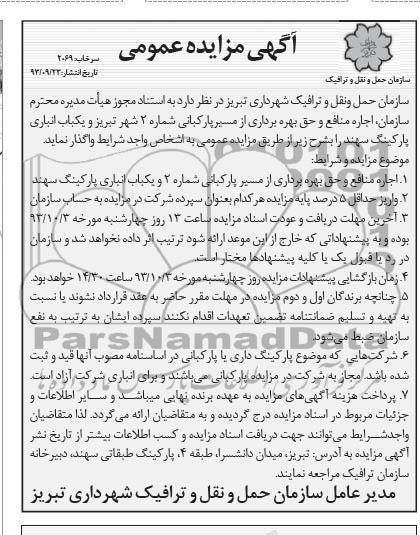 آگهی مزایده عمومی
سرخاب: ۲۰۶۹
تاریخ انتشار: ۹۳/۰۹/۲۳
سازمان حمل و نقل و ترافیک
سازمان حمل ونقل و ترافیک شهرداری تبریز در نظر دارد به استناد مجوز هیأت مدیره محترم
سازمان، اجاره منافع و حق بهره برداری از مسیرپارکبانی شماره ۲ شهر تبریز و یکباب انباری
پارکینگ سهند را بشرح زیر از طریق مزایده عمومی به اشخاص واجد شرایط واگذار نماید.
موضوع مزایده و شرایط:
۱. اجاره منافع و حق بهره برداری از مسیر پارکبانی شماره ۲ و یکباب انباری پارکینگ سهند
۲. واریز حداقل ۵ درصد پایه مزایده هرکدام بعنوان سپرده شرکت در مزایده به حساب سازمان
۳. آخرین مهلت دریافت و عودت اسناد مزایده ساعت ۱۳ روز چهارشنبه مورخه ۹۳/۱۰/۳
بوده و به پیشنهاداتی که خارج از این موعد ارائه شود ترتیب اثر داده نخواهد شد و سازمان
در رد یا قبول یک یا کلیه پیشنهادها مختار است.
۴. زمان بازگشایی پیشنهادات مزایده روز چهارشنبه مورخه ۹۳/۱۰/۳ ساعت ۱۴/۳۰ خواهد بود.
۵. چنانچه برندگان اول و دوم مزایده در مهلت مقرر حاضر به عقد قرارداد نشوند یا نسبت
به تهیه و تسلیم ضمانتنامه تضمین تعهدات اقدام نکنند سپرده ایشان به ترتیب به نفع
سازمان ضبط می‌شود.
۶. شرکت‌هایی که موضوع پارکینگ داری یا پارکبانی در اساسنامه مصوب آنها قید و ثبت
شده باشد. مجاز به شرکت در مزایده پارکبانی می‌باشند و برای انباری شرکت آزاد است.
۷. پرداخت هزینه آگهی‌های مزایده به عهده برنده نهایی میباشد و سایر اطلاعات و
جزئیات مربوط در اسناد مزایده درج گردیده و به متقاضیان ارائه می‌گردد. لذا متقاضیان
واجدشرایط می‌توانند جهت دریافت اسناد مزایده و کسب اطلاعات بیشتر از تاریخ نشر
آگهی مزایده به آدرس: تبریز، میدان دانشسرا، طبقه ۴، پارکینگ طبقاتی سهند، دبیرخانه
سازمان ترافیک مراجعه نمایند.
مدیر عامل سازمان حمل و نقل و ترافیک شهرداری تبریز
ParsNamadData